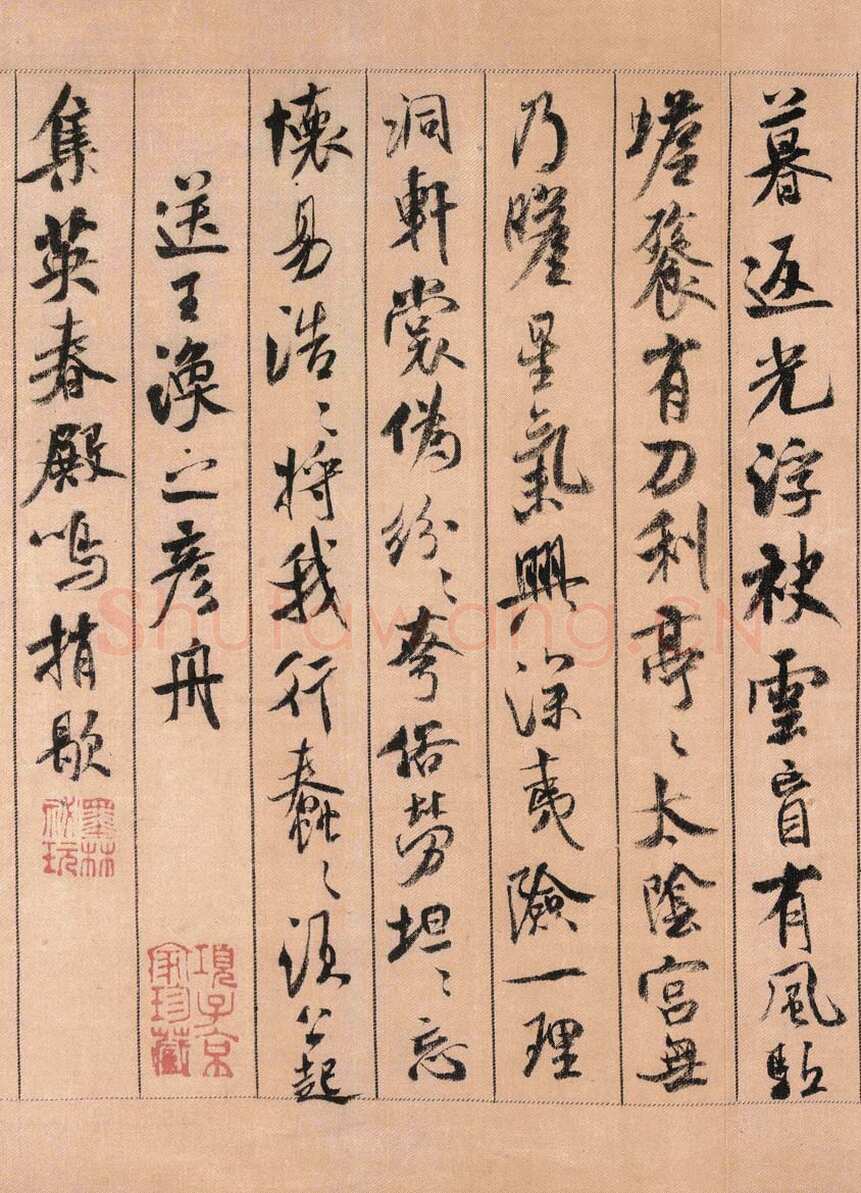 暮返光浮袂雲盲有風駈
蟾餮有刀利亭〻太陰宮無
乃瞻星氣興深夷險一理
洞軒裳偽紛〻夸俗勞坦〻忘
懷易浩〻將我行蠢〻須公起
送王渙之彥舟
集英春殿鳴捎歇
項子京家珍藏
墨林祕玩
Shufawang.CN